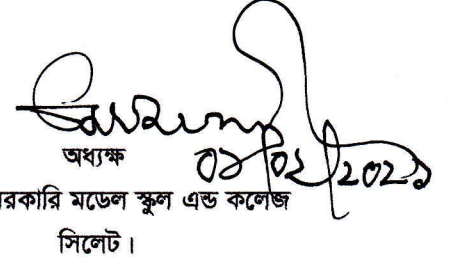 অধ্যক্ষ
০১/০২/২০২১
রকারি মডেল স্কুল এন্ড কলেজ
সিলেট।